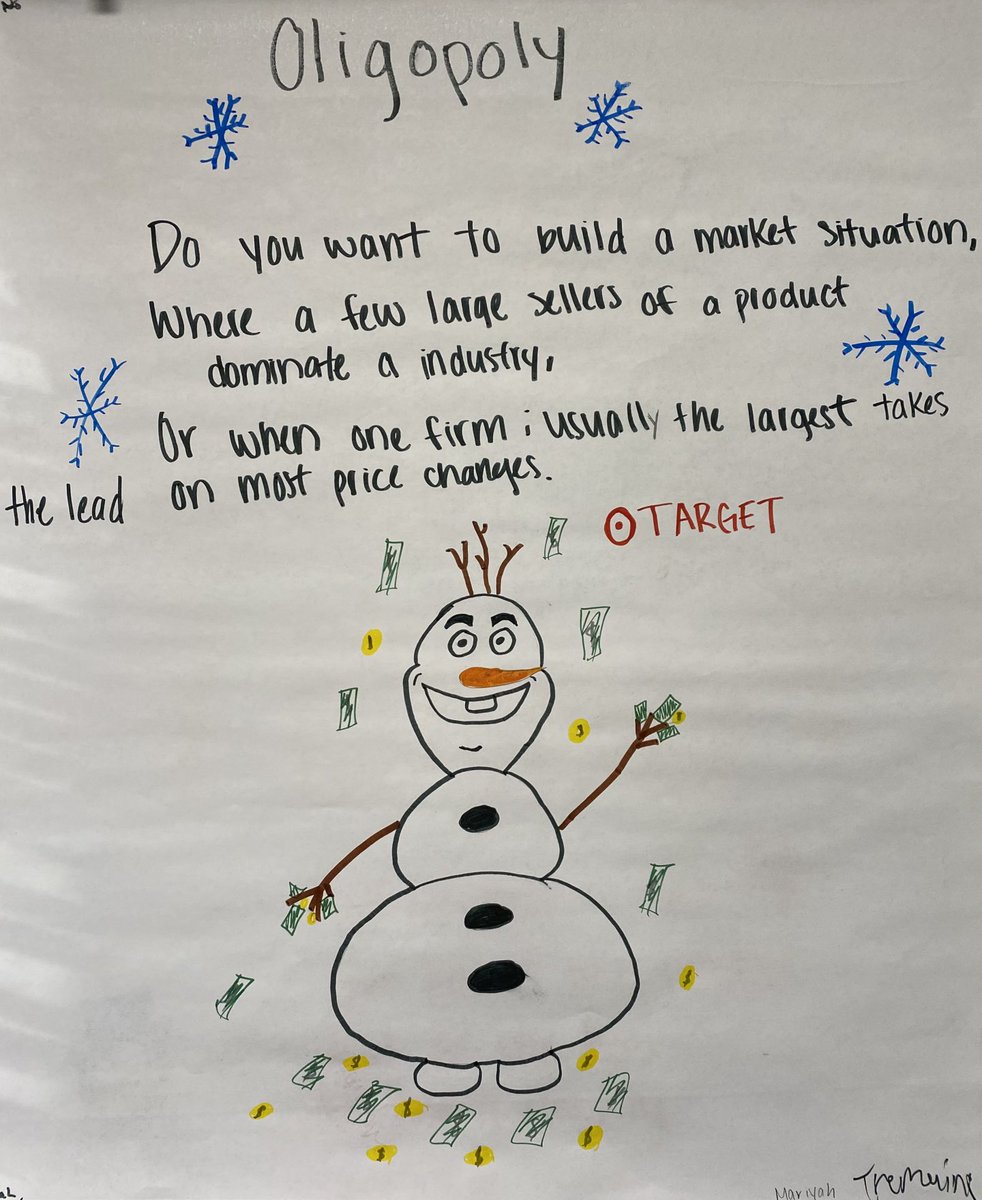 Oligopoly
Do you want to build a market situation,
Where a few large sellers of a product
dominate a industry,
Or when one firm ; usually the largest takes
the lead on most price changes.
TARGET
Mariyah